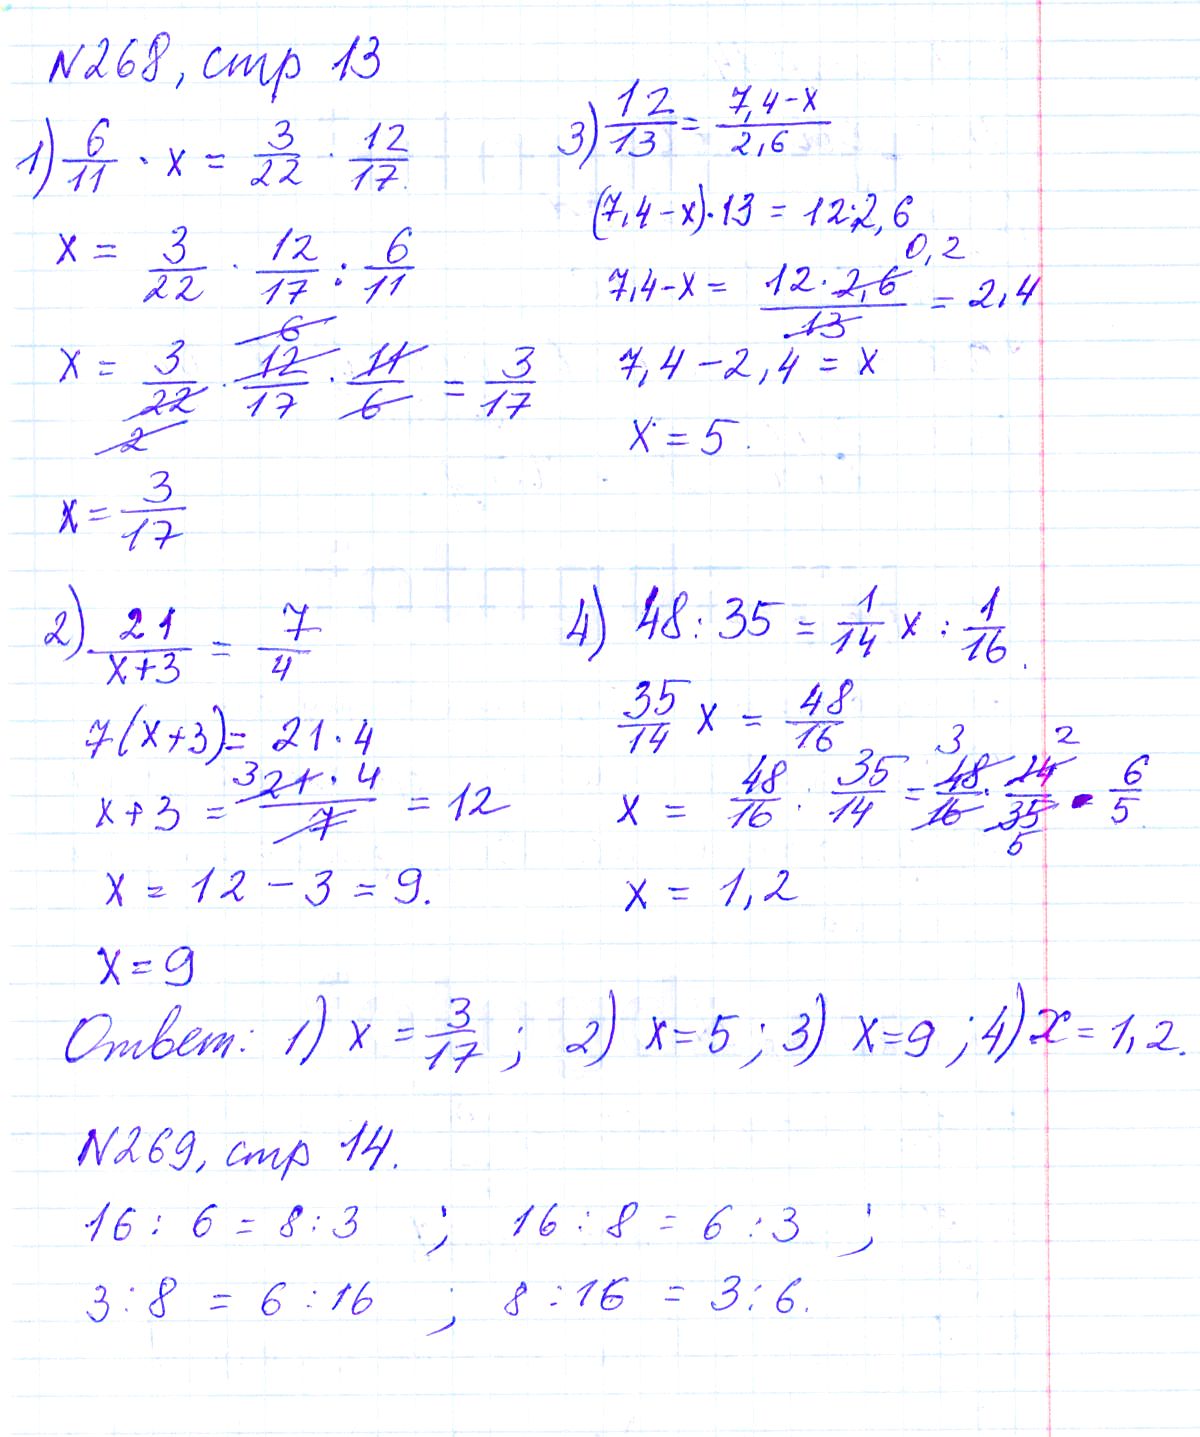 N268, стр 13
1) 6/11 · x = 3/22 · 12/17
x = 3/22 · 12/17 : 6/11
x = 3/22 · 12/17 · 11/6 = 3/17
6
2
x = 3/17
3) 12/13 = 7,4-x/2,6
(7,4-x)·13 = 12·2,6
0,2
7,4-x = 12·2,6/13 = 2,4
7,4-2,4 = x
x = 5.
2) 21/x+3 = 7/4
7(x+3) = 21·4
3
x+3 = 21·4/7 = 12
x = 12-3 = 9.
x = 9
4) 48:35 = 1/14 x : 1/16.
35/14 x = 48/16
3 2
x = 48/16 : 35/14 = 48/16 · 14/35 = 6/5
5
x = 1,2
Ответ: 1) x = 3/17; 2) x=5; 3) x=9; 4) x=1,2.
N269, стр 14.
16:6 = 8:3 ; 16:8 = 6:3 ;
3:8 = 6:16 ; 8:16 = 3:6.